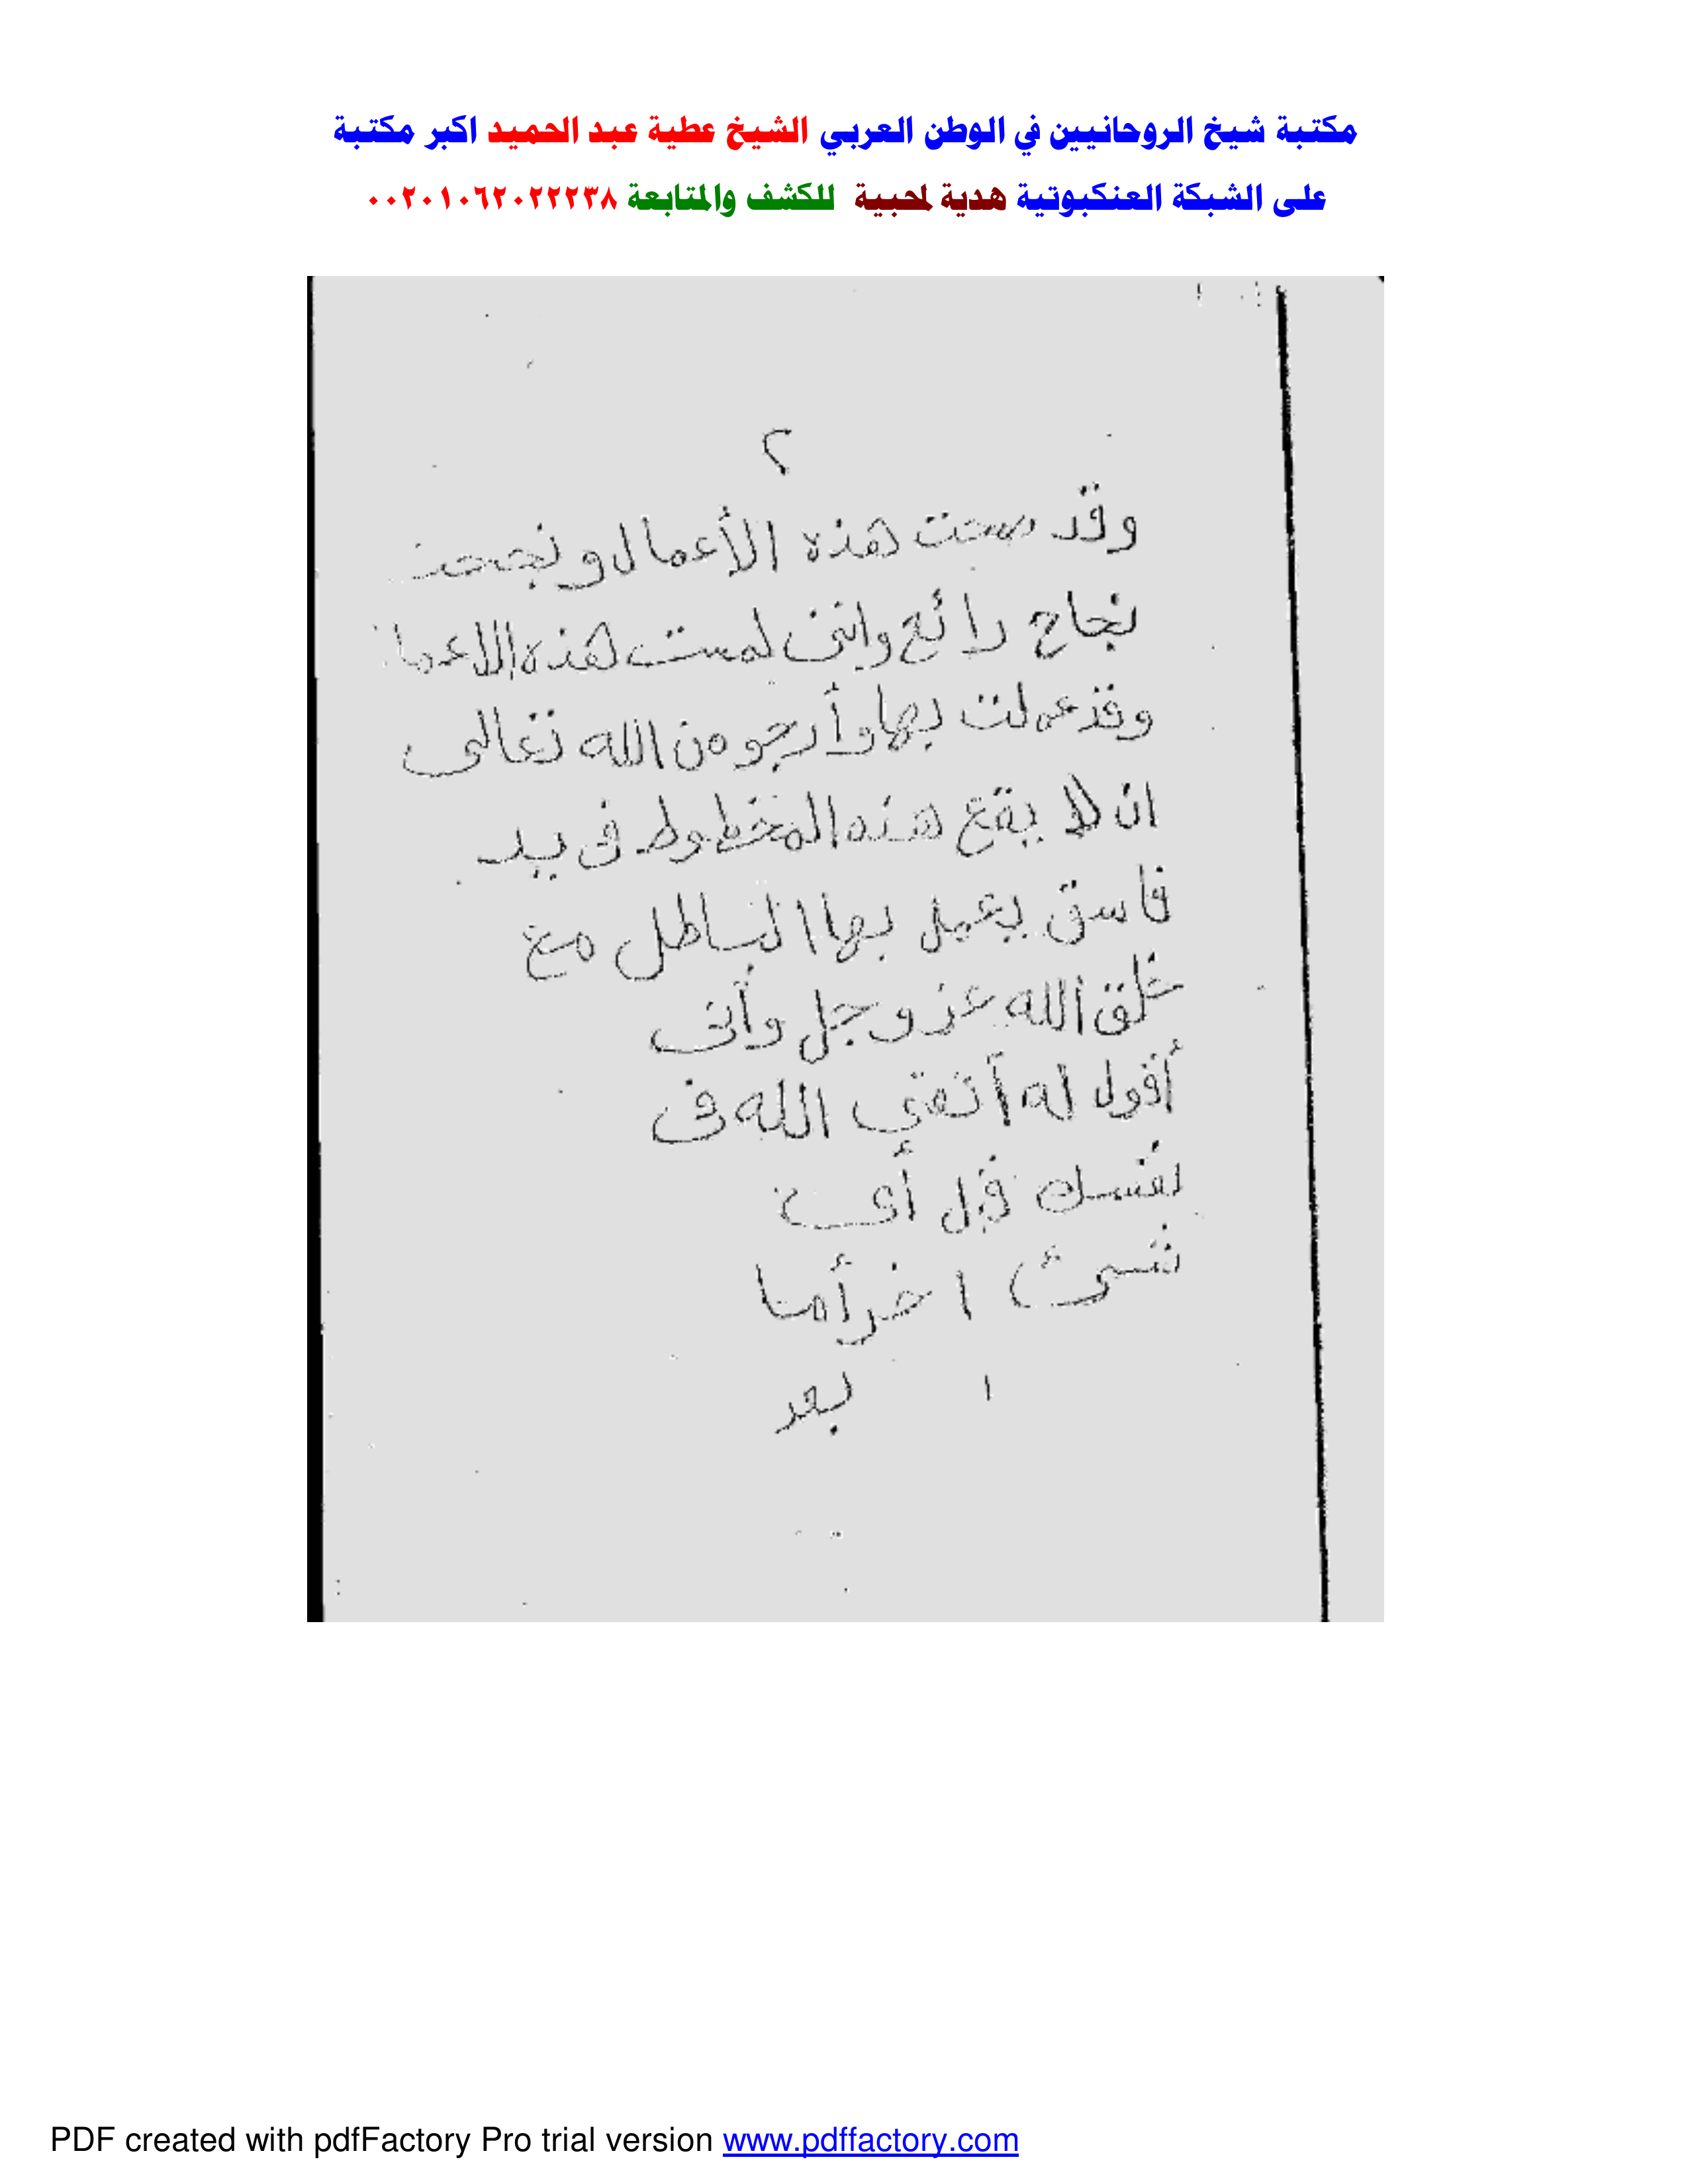 مكتبة شيخ الروحانيين في الوطن العربي الشيخ عطية عبد الحميد اكبر مكتبة
على الشبكة العنكبوتية هدية لمحبية للكشف والمتابعة ٠٠٢٠١٠٦٢٠٢٢٢٣٨
٢
وقد صحت هذه الأعمال ونجحت
نجاح رائع واننى لمست هذه الاعما
وقد عملت بها وأرجو من الله تعالى
ان لا يقع هذه المخطوط فى يد
فاسق يعمل بها الباطل مع
خلق الله عز وجل وأنى
أقول له أتقى الله فى
نفسك قبل أى
شىئ اخر أما
بعد
PDF created with pdfFactory Pro trial version www.pdffactory.com